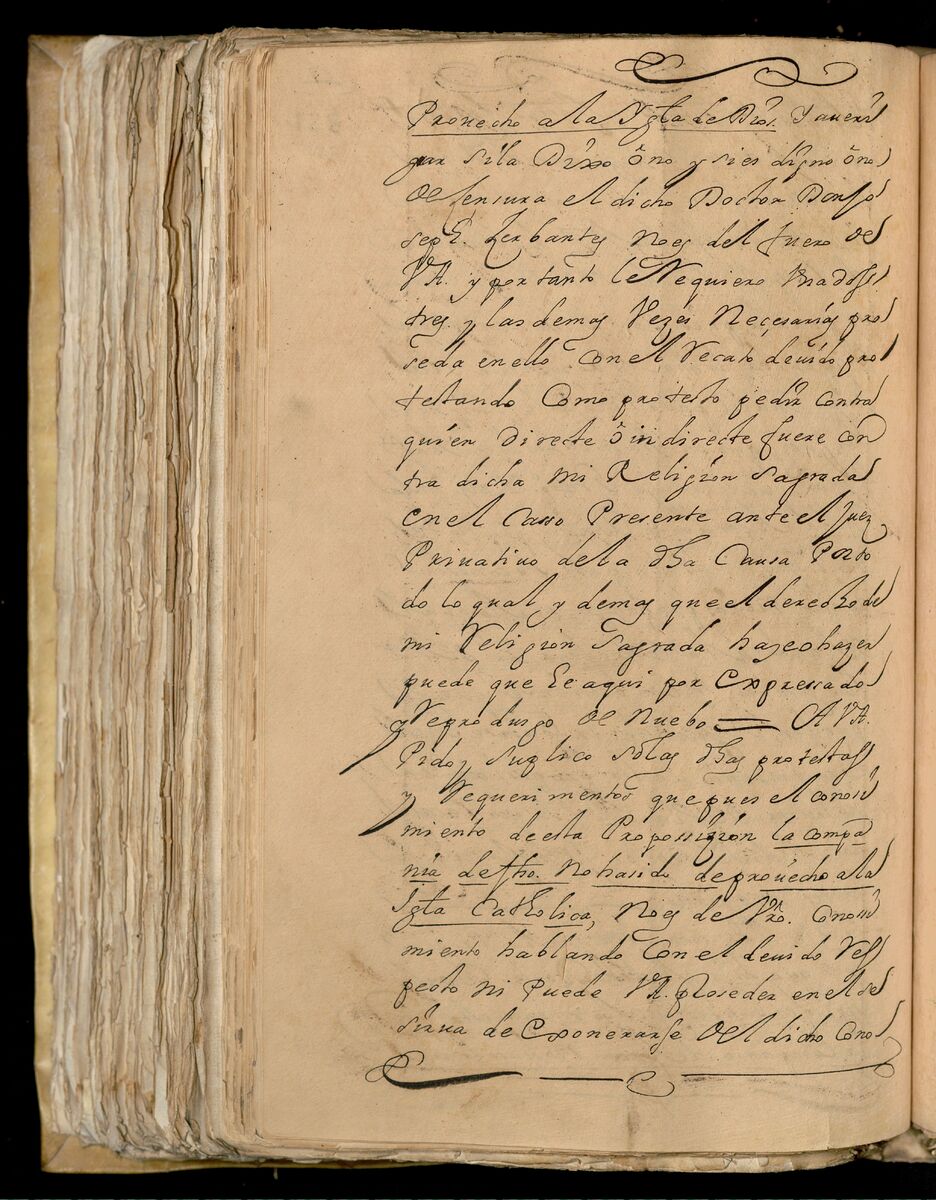 Prouecho a la Ygla de Dios. Y aueri
guar si la Dixo ô no y si es digno ô no
de sensura el dicho Doctor Don Jo
seph. Zerbantes no es del fuero de
VA. y por tanto le Requiero Vna dos
tres y las demas Vezes Neçesarias pro
seda en ello con el Recato deuido pro
testando como protesto pedir contra
quien directe ô indirecte fuere con
tra dicha mi Religion sagrada
en el casso Presente ante el Juez
Priuatiuo de la dha Causa Porto
do lo qual y demas que el derecho de
mi Religion Sagrada haze o hazer
puede que he aqui por expressado
y Reprodusgo de Nuebo = A VA.
Pido y suplico solas dhas protestas
y Requerimentos que pues el conosi
miento de esta Proposizion la compa
nia de Jho. No ha sido de prouecho a la
Igla Catholica, No es de Vro. Conosi
miento hablando con el deuido Res
pecto ni Puede VA. Proseder en el se
sirua de exonerarse del dicho cono